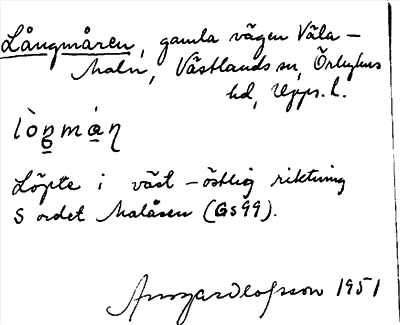 Långmåren, gamla vägen Väla-
Maln, Västlands sn, Örbyhus
hd, Upps. l.
Löpte i väst-östlig riktning
S ordet Malåsen (GS99).
Ansgar Olofsson 1951